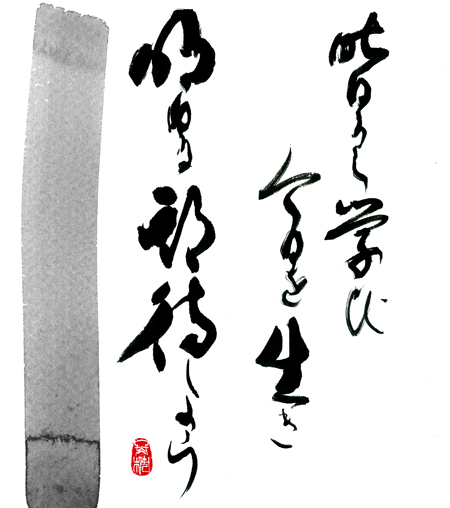 昨日から学び
今日を生き
明日を期待しよう